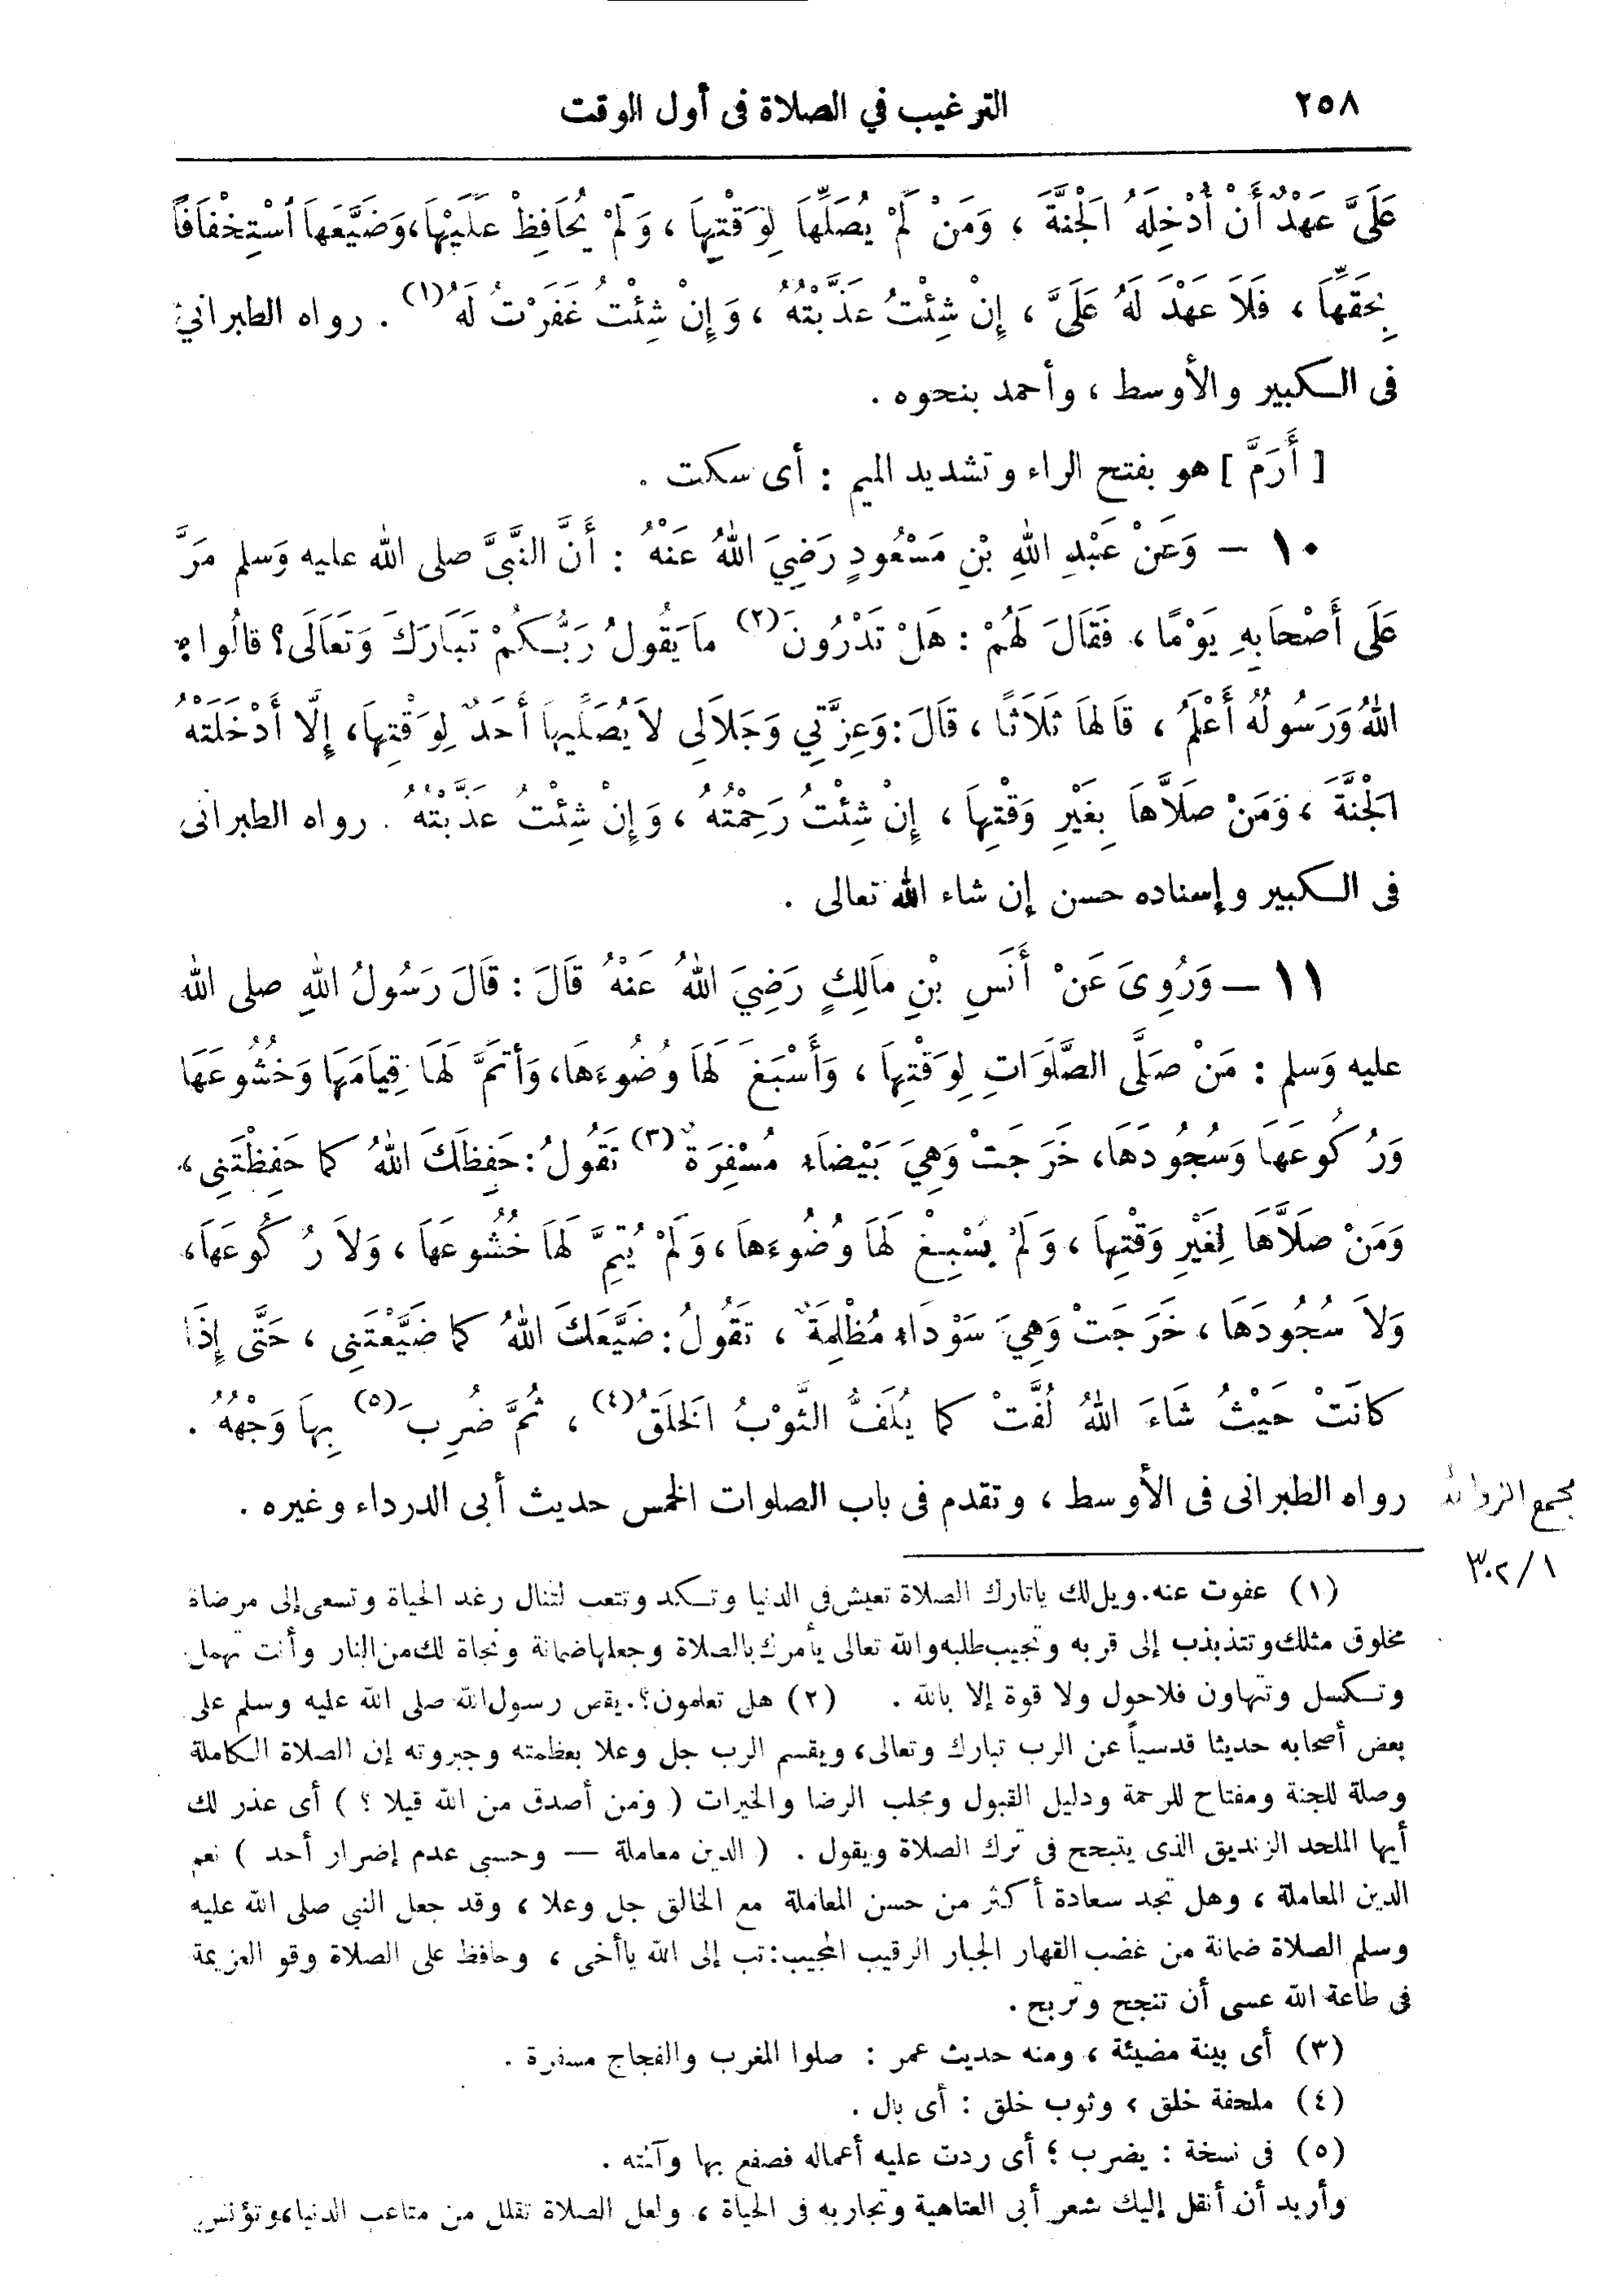 ٢٥٨ الترغيب في الصلاة فى أول الوقت
عَلَىَّ عَهْدٌ أَنْ أُدْخِلَهُ الْجَنَّةَ ، وَمَنْ لَمْ يُصَلِّهَا لِوَقْتِهَا ، وَلَمْ يُحَافِظْ عَلَيْهَا، وَضَيَّعَهَا اسْتِخْفَافًا
بِحَقِّهَا ، فَلَا عَهْدَ لَهُ عَلَىَّ ، إِنْ شِئْتُ عَذَّبْتُهُ ، وَإِنْ شِئْتُ غَفَرْتُ لَهُ(١) . رواه الطبرانيّ
فى الكبير والأوسط ، وأحمد بنحوه .
[ أَرَمَّ ] هو بفتح الراء وتشديد الميم : أى سكت .
١٠ – وَعَنْ عَبْدِ اللهِ بْنِ مَسْعُودٍ رَضِيَ اللهُ عَنْهُ : أَنَّ النَّبِيَّ صلى الله عليه وَسلم مَرَّ
عَلَى أَصْحَابِهِ يَوْمًا ، فَقَالَ لَهُمْ : هَلْ تَدْرُونَ(٢) مَا يَقُولُ رَبُّكُمْ تَبَارَكَ وَتَعَالَى؟ قالُوا :
اللهُ وَرَسُولُهُ أَعْلَمُ ، قَالَهَا ثَلَاثًا ، قَالَ : وَعِزَّتِي وَجَلَالِى لَا يُصَلِّيهَا أَحَدٌ لِوَقْتِهَا، إِلَّا أَدْخَلْتُهُ
الْجَنَّةَ ، وَمَنْ صَلَّاهَا بِغَيْرِ وَقْتِهَا ، إِنْ شِئْتُ رَحِمْتُهُ ، وَإِنْ شِئْتُ عَذَّبْتُهُ . رواه الطبرانى
فى الكبير وإسناده حسن إن شاء الله تعالى .
١١ – وَرُوِىَ عَنْ أَنَسِ بْنِ مَالِكٍ رَضِيَ اللهُ عَنْهُ قَالَ : قَالَ رَسُولُ اللهِ صلى الله
عليه وَسلم : مَنْ صَلَّى الصَّلَوَاتِ لِوَقْتِهَا ، وَأَسْبَغَ لَهَا وُضُوءَهَا، وَأَتَمَّ لَهَا قِيَامَهَا وَخُشُوعَهَا
وَرُكُوعَهَا وَسُجُودَهَا، خَرَجَتْ وَهِيَ بَيْضَاءُ مُسْفِرَةٌ(٣) تَقُولُ : حَفِظَكَ اللهُ كما حَفِظْتَنِى ،
وَمَنْ صَلَّاهَا لِغَيْرِ وَقْتِهَا ، وَلَمْ يُسْبِغْ لَهَا وُضُوءَهَا ، وَلَمْ يُتِمَّ لَهَا خُشُوعَهَا ، وَلَا رُكُوعَهَا،
وَلَا سُجُودَهَا ، خَرَجَتْ وَهِيَ سَوْدَاءُ مُظْلِمَةٌ ، تَقُولُ : ضَيَّعَكَ اللهُ كما ضَيَّعْتَنِى ، حَتَّى إِذَا
كانَتْ حَيْثُ شَاءَ اللهُ لُفَّتْ كما يُلَفُّ الثَّوْبُ الْخَلَقُ(٤) ، ثُمَّ ضُرِبَ(٥) بِهَا وَجْهُهُ .
رواه الطبرانى فى الأوسط ، وتقدم فى باب الصلوات الخمس حديث أبى الدرداء وغيره .
مجمع الزوائد
٣٠٢/١
(١) عفوت عنه. ويل لك ياتارك الصلاة تعيش فى الدنيا وتكد وتتعب لتنال رغد الحياة وتسعى إلى مرضاة
مخلوق مثلك وتتذبذب إلى قربه وتجيب طلبه والله تعالى يأمرك بالصلاة وجعلها ضمانة ونجاة لك من النار وأنت تهمل
وتكسل وتتهاون فلاحول ولا قوة إلا بالله . (٢) هل تعلمون؟. يقص رسول الله صلى الله عليه وسلم على
بعض أصحابه حديثا قدسياً عن الرب تبارك وتعالى، ويقسم الرب جل وعلا بعظمته وجبروته إن الصلاة الكاملة
وصلة للجنة ومفتاح للرحمة ودليل القبول ومجلب الرضا والخيرات ( ومن أصدق من الله قيلا ؟ ) أى عذر لك
أيها الملحد الزنديق الذى يتبجح فى ترك الصلاة ويقول . ( الدين معاملة – وحسبى عدم إضرار أحد ) نعم
الدين المعاملة ، وهل تجد سعادة أكثر من حسن المعاملة مع الخالق جل وعلا ، وقد جعل النبي صلى الله عليه
وسلم الصلاة ضمانة من غضب القهار الجبار الرقيب المجيب: تب إلى الله ياأخى ، وحافظ على الصلاة وقو العزيمة
فى طاعة الله عسى أن تنجح وتربح .
(٣) أى بينة مضيئة ، ومنه حديث عمر : صلوا المغرب والفجاج مسفرة .
(٤) ملحفة خلق ، وثوب خلق : أى بال .
(٥) فى نسخة : يضرب ؛ أى ردت عليه أعماله فصفع بها وآنته .
وأريد أن أنقل إليك شعر أبى العتاهية وتجاربه فى الحياة ، ولعل الصلاة تقلل من متاعب الدنيا، وتؤنس